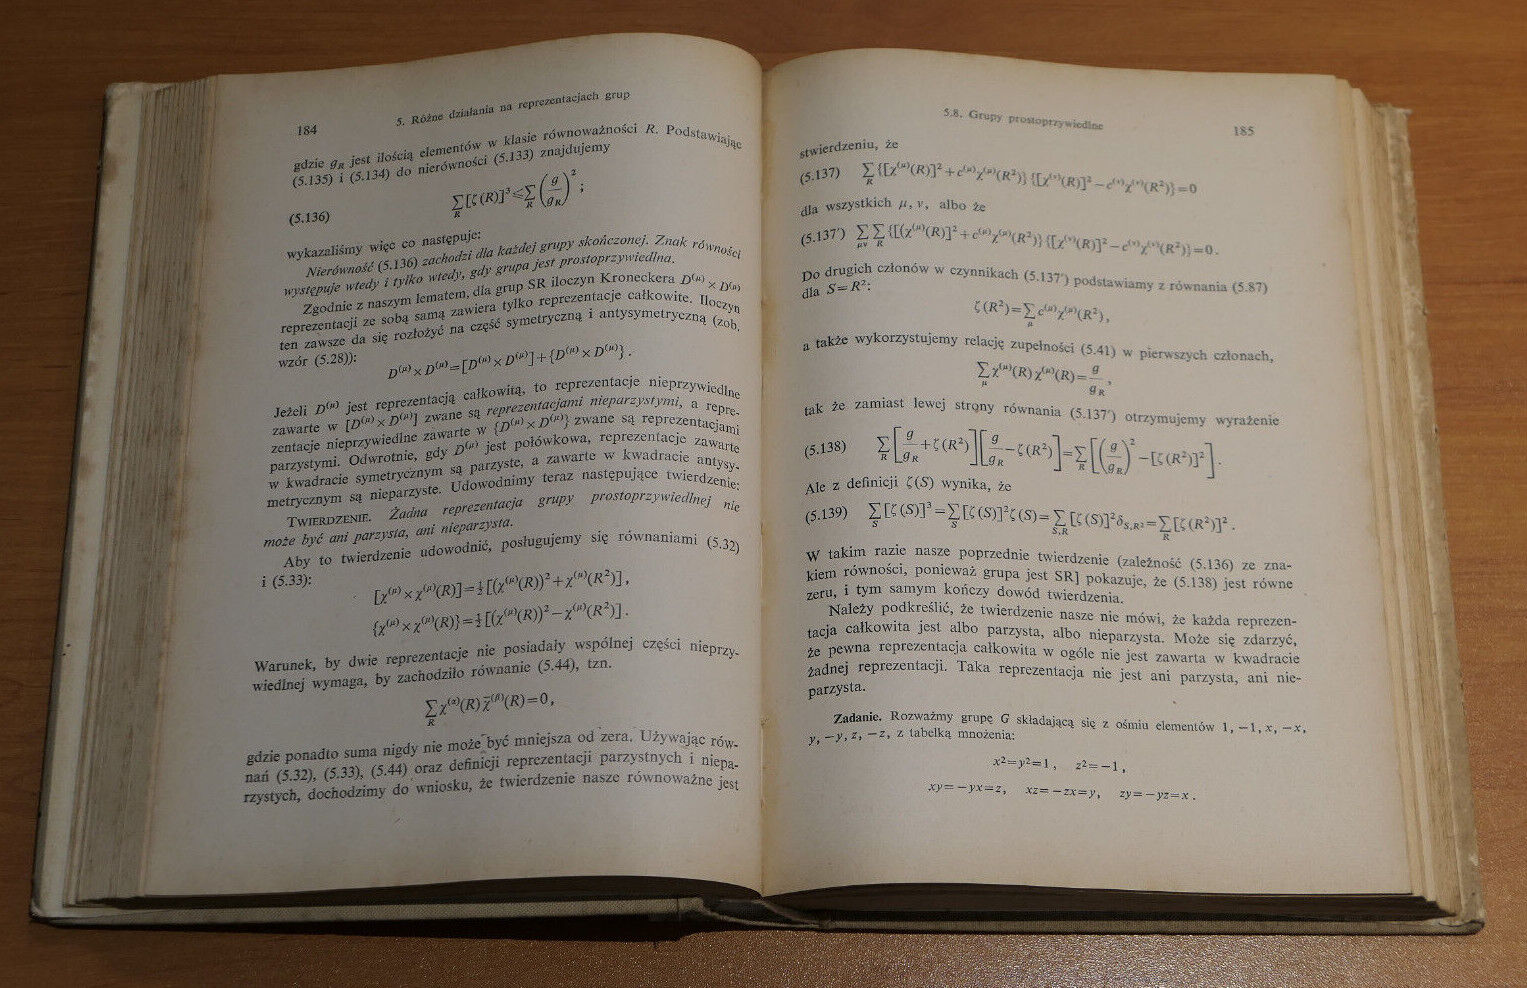 184
5. Różne działania na reprezentacjach grup
gdzie g_R jest ilością elementów w klasie równoważności R. Podstawiając
(5.135) i (5.134) do nierówności (5.133) znajdujemy
(5.136) ∑_R [ζ(R)]³ ≤ ∑_R (g/g_R)² ;
wykazaliśmy więc co następuje:
Nierówność (5.136) zachodzi dla każdej grupy skończonej. Znak równości
występuje wtedy i tylko wtedy, gdy grupa jest prostoprzywiedlna.
Zgodnie z naszym lematem, dla grup SR iloczyn Kroneckera D^(μ) × D^(μ)
reprezentacji ze sobą samą zawiera tylko reprezentacje całkowite. Iloczyn
ten zawsze da się rozłożyć na część symetryczną i antysymetryczną (zob.
wzór (5.28)):
D^(μ) × D^(μ) = [D^(μ) × D^(μ)] + {D^(μ) × D^(μ)} .
Jeżeli D^(μ) jest reprezentacją całkowitą, to reprezentacje nieprzywiedlne
zawarte w [D^(μ) × D^(μ)] zwane są reprezentacjami nieparzystymi, a repre-
zentacje nieprzywiedlne zawarte w {D^(μ) × D^(μ)} zwane są reprezentacjami
parzystymi. Odwrotnie, gdy D^(μ) jest połówkowa, reprezentacje zawarte
w kwadracie symetrycznym są parzyste, a zawarte w kwadracie antysy-
metrycznym są nieparzyste. Udowodnimy teraz następujące twierdzenie:
TWIERDZENIE. Żadna reprezentacja grupy prostoprzywiedlnej nie
może być ani parzysta, ani nieparzysta.
Aby to twierdzenie udowodnić, posługujemy się równaniami (5.32)
i (5.33):
[χ^(μ) × χ^(μ)(R)] = ½ [(χ^(μ)(R))² + χ^(μ)(R²)] ,
{χ^(μ) × χ^(μ)(R)} = ½ [(χ^(μ)(R))² − χ^(μ)(R²)] .
Warunek, by dwie reprezentacje nie posiadały wspólnej części nieprzy-
wiedlnej wymaga, by zachodziło równanie (5.44), tzn.
∑_R χ^(α)(R) χ̄^(β)(R) = 0 ,
gdzie ponadto suma nigdy nie może być mniejsza od zera. Używając rów-
nań (5.32), (5.33), (5.44) oraz definicji reprezentacji parzystnych i niepa-
rzystych, dochodzimy do wniosku, że twierdzenie nasze równoważne jest
5.8. Grupy prostoprzywiedlne
185
stwierdzeniu, że
(5.137) ∑_R {[χ^(μ)(R)]² + c^(μ)χ^(μ)(R²)} {[χ^(ν)(R)]² − c^(ν)χ^(ν)(R²)} = 0
dla wszystkich μ, ν, albo że
(5.137′) ∑_μν ∑_R {[(χ^(μ)(R)]² + c^(μ)χ^(μ)(R²)} {[χ^(ν)(R)]² − c^(ν)χ^(ν)(R²)} = 0 .
Do drugich członów w czynnikach (5.137′) podstawiamy z równania (5.87)
dla S = R²:
ζ(R²) = ∑_μ c^(μ)χ^(μ)(R²) ,
a także wykorzystujemy relację zupełności (5.41) w pierwszych członach,
∑_μ χ^(μ)(R) χ^(μ)(R) = g/g_R ,
tak że zamiast lewej strony równania (5.137′) otrzymujemy wyrażenie
(5.138) ∑_R [g/g_R + ζ(R²)] [g/g_R − ζ(R²)] = ∑_R [(g/g_R)² − [ζ(R²)]²] .
Ale z definicji ζ(S) wynika, że
(5.139) ∑_S [ζ(S)]³ = ∑_S [ζ(S)]² ζ(S) = ∑_S,R [ζ(S)]² δ_S,R² = ∑_R [ζ(R²)]² .
W takim razie nasze poprzednie twierdzenie (zależność (5.136) ze zna-
kiem równości, ponieważ grupa jest SR] pokazuje, że (5.138) jest równe
zeru, i tym samym kończy dowód twierdzenia.
Należy podkreślić, że twierdzenie nasze nie mówi, że każda reprezen-
tacja całkowita jest albo parzysta, albo nieparzysta. Może się zdarzyć,
że pewna reprezentacja całkowita w ogóle nie jest zawarta w kwadracie
żadnej reprezentacji. Taka reprezentacja nie jest ani parzysta, ani nie-
parzysta.
Zadanie. Rozważmy grupę G składającą się z ośmiu elementów 1, −1, x, −x,
y, −y, z, −z, z tabelką mnożenia:
x² = y² = 1 , z² = −1 ,
xy = −yx = z , xz = −zx = y , zy = −yz = x .